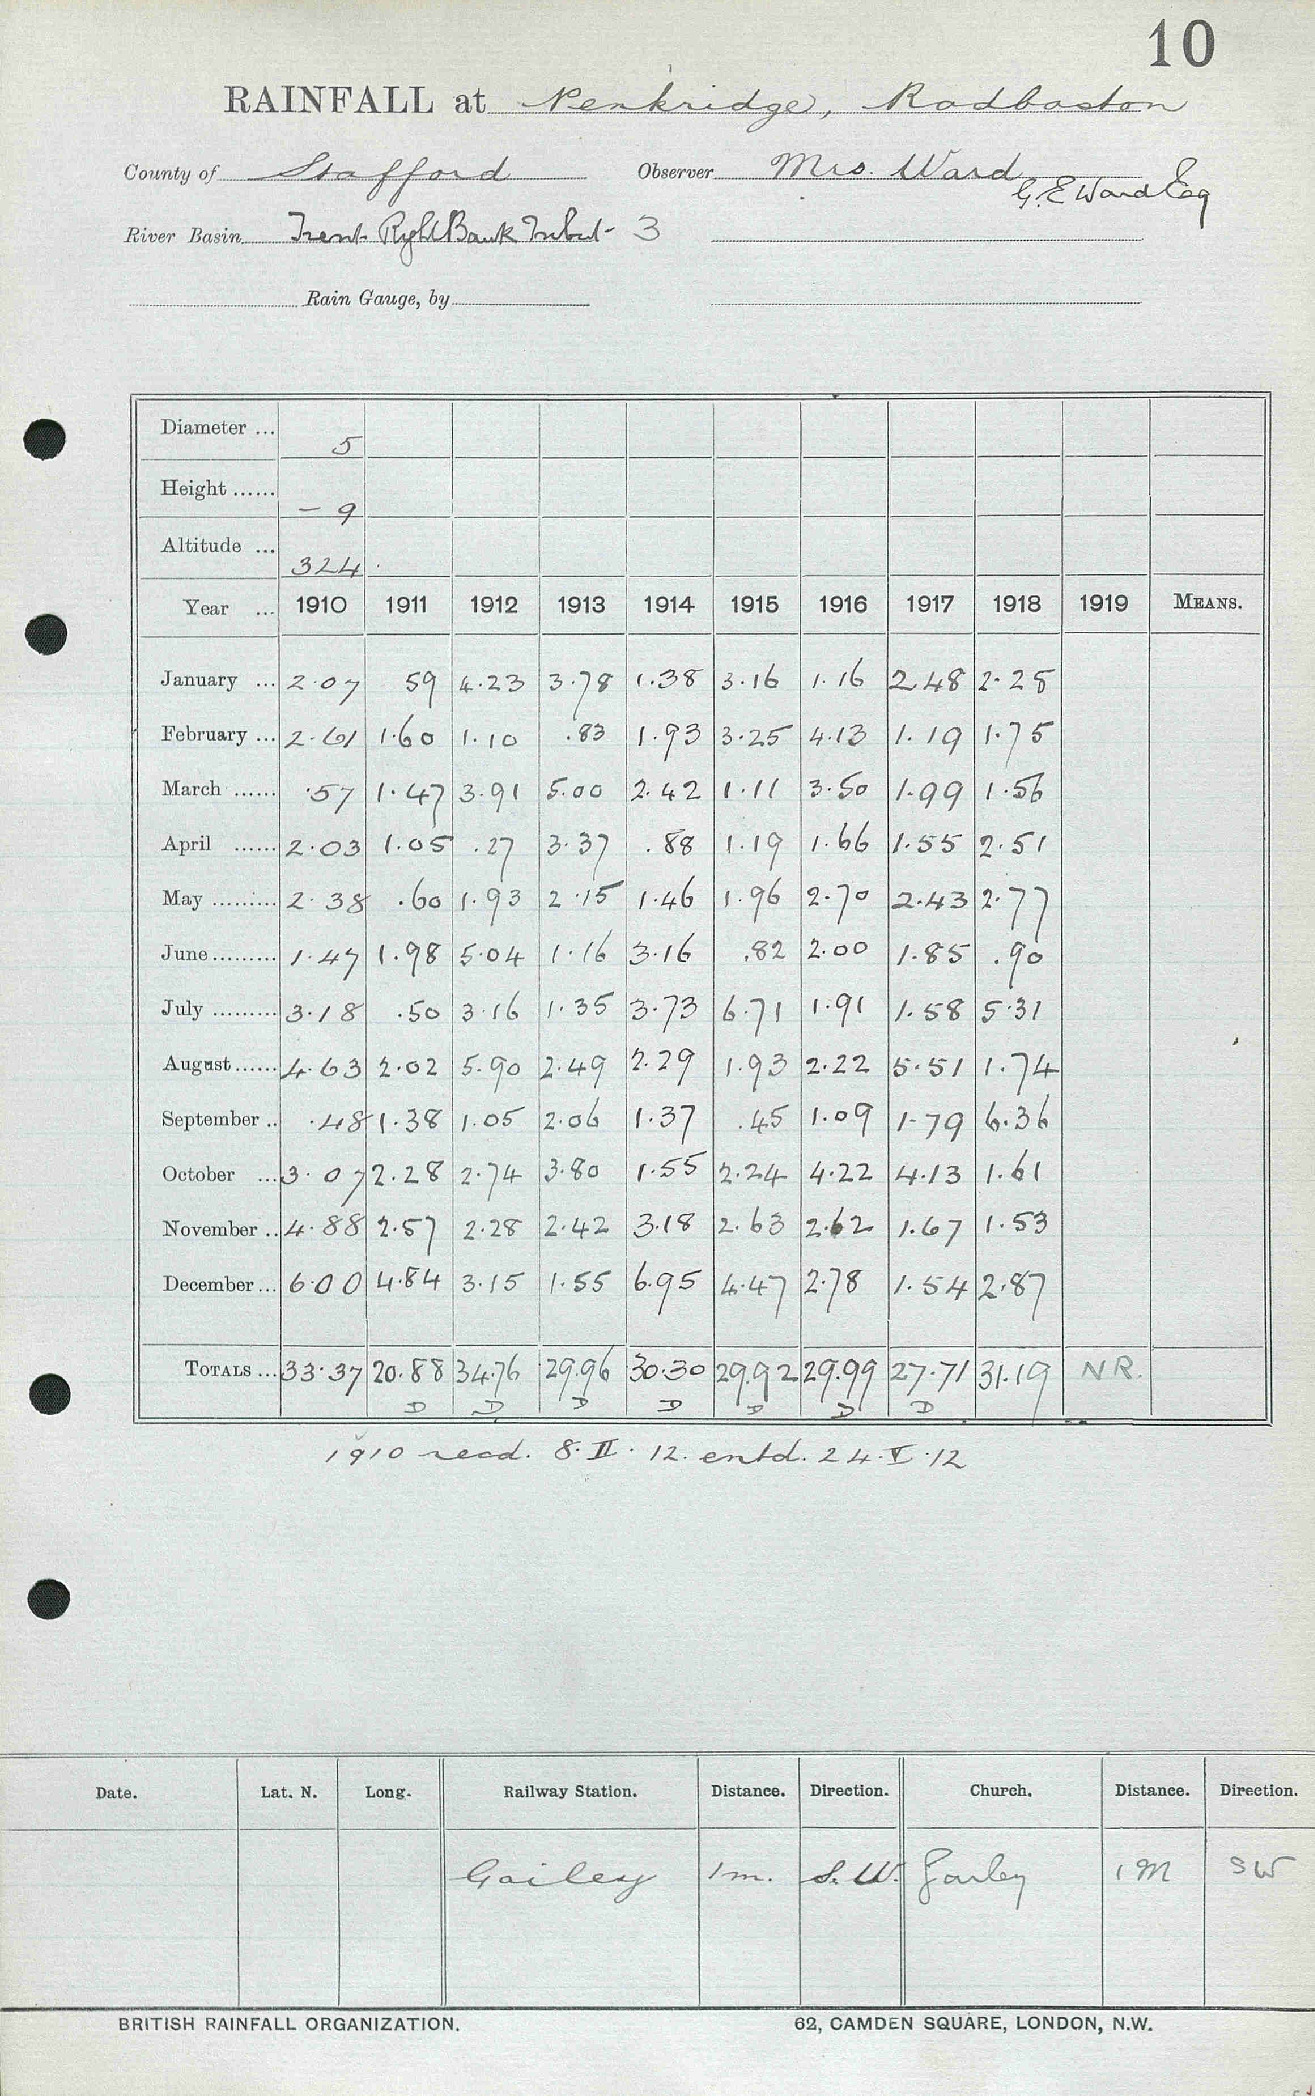 10
RAINFALL at Penkridge, Rodbaston
County of Stafford Observer Mrs. Ward
G. E Ward Esq
River Basin Trent Right Bank Tribut- 3
Rain Gauge, by
Diameter ... 5
Height ...... - 9
Altitude ... 324
Year ... 1910 1911 1912 1913 1914 1915 1916 1917 1918 1919 MEANS.
January ... 2.07 59 4.23 3.78 1.38 3.16 1.16 2.48 2.25
February ... 2.61 1.60 1.10 .83 1.93 3.25 4.13 1.19 1.75
March ...... .57 1.47 3.91 5.00 2.42 1.11 3.50 1.99 1.56
April ...... 2.03 1.05 .27 3.37 .88 1.19 1.66 1.55 2.51
May ......... 2.38 .60 1.93 2.15 1.46 1.96 2.70 2.43 2.77
June ......... 1.47 1.98 5.04 1.16 3.16 .82 2.00 1.85 .90
July ......... 3.18 .50 3.16 1.35 3.73 6.71 1.91 1.58 5.31
August ...... 4.63 2.02 5.90 2.49 2.29 1.93 2.22 5.51 1.74
September .. .48 1.38 1.05 2.06 1.37 .45 1.09 1.79 6.36
October ... 3.07 2.28 2.74 3.80 1.55 2.24 4.22 4.13 1.61
November .. 4.88 2.57 2.28 2.42 3.18 2.63 2.62 1.67 1.53
December ... 6.00 4.84 3.15 1.55 6.95 4.47 2.78 1.54 2.87
TOTALS ... 33.37 20.88 34.76 29.96 30.30 29.92 29.99 27.71 31.19 NR.
D D D D D D D
1910 recd. 8.II.12. entd. 24.V.12
Date. Lat. N. Long. Railway Station. Distance. Direction. Church. Distance. Direction.
Gailey 1m. S.W. Gailey 1 M SW
BRITISH RAINFALL ORGANIZATION. 62, CAMDEN SQUARE, LONDON, N.W.